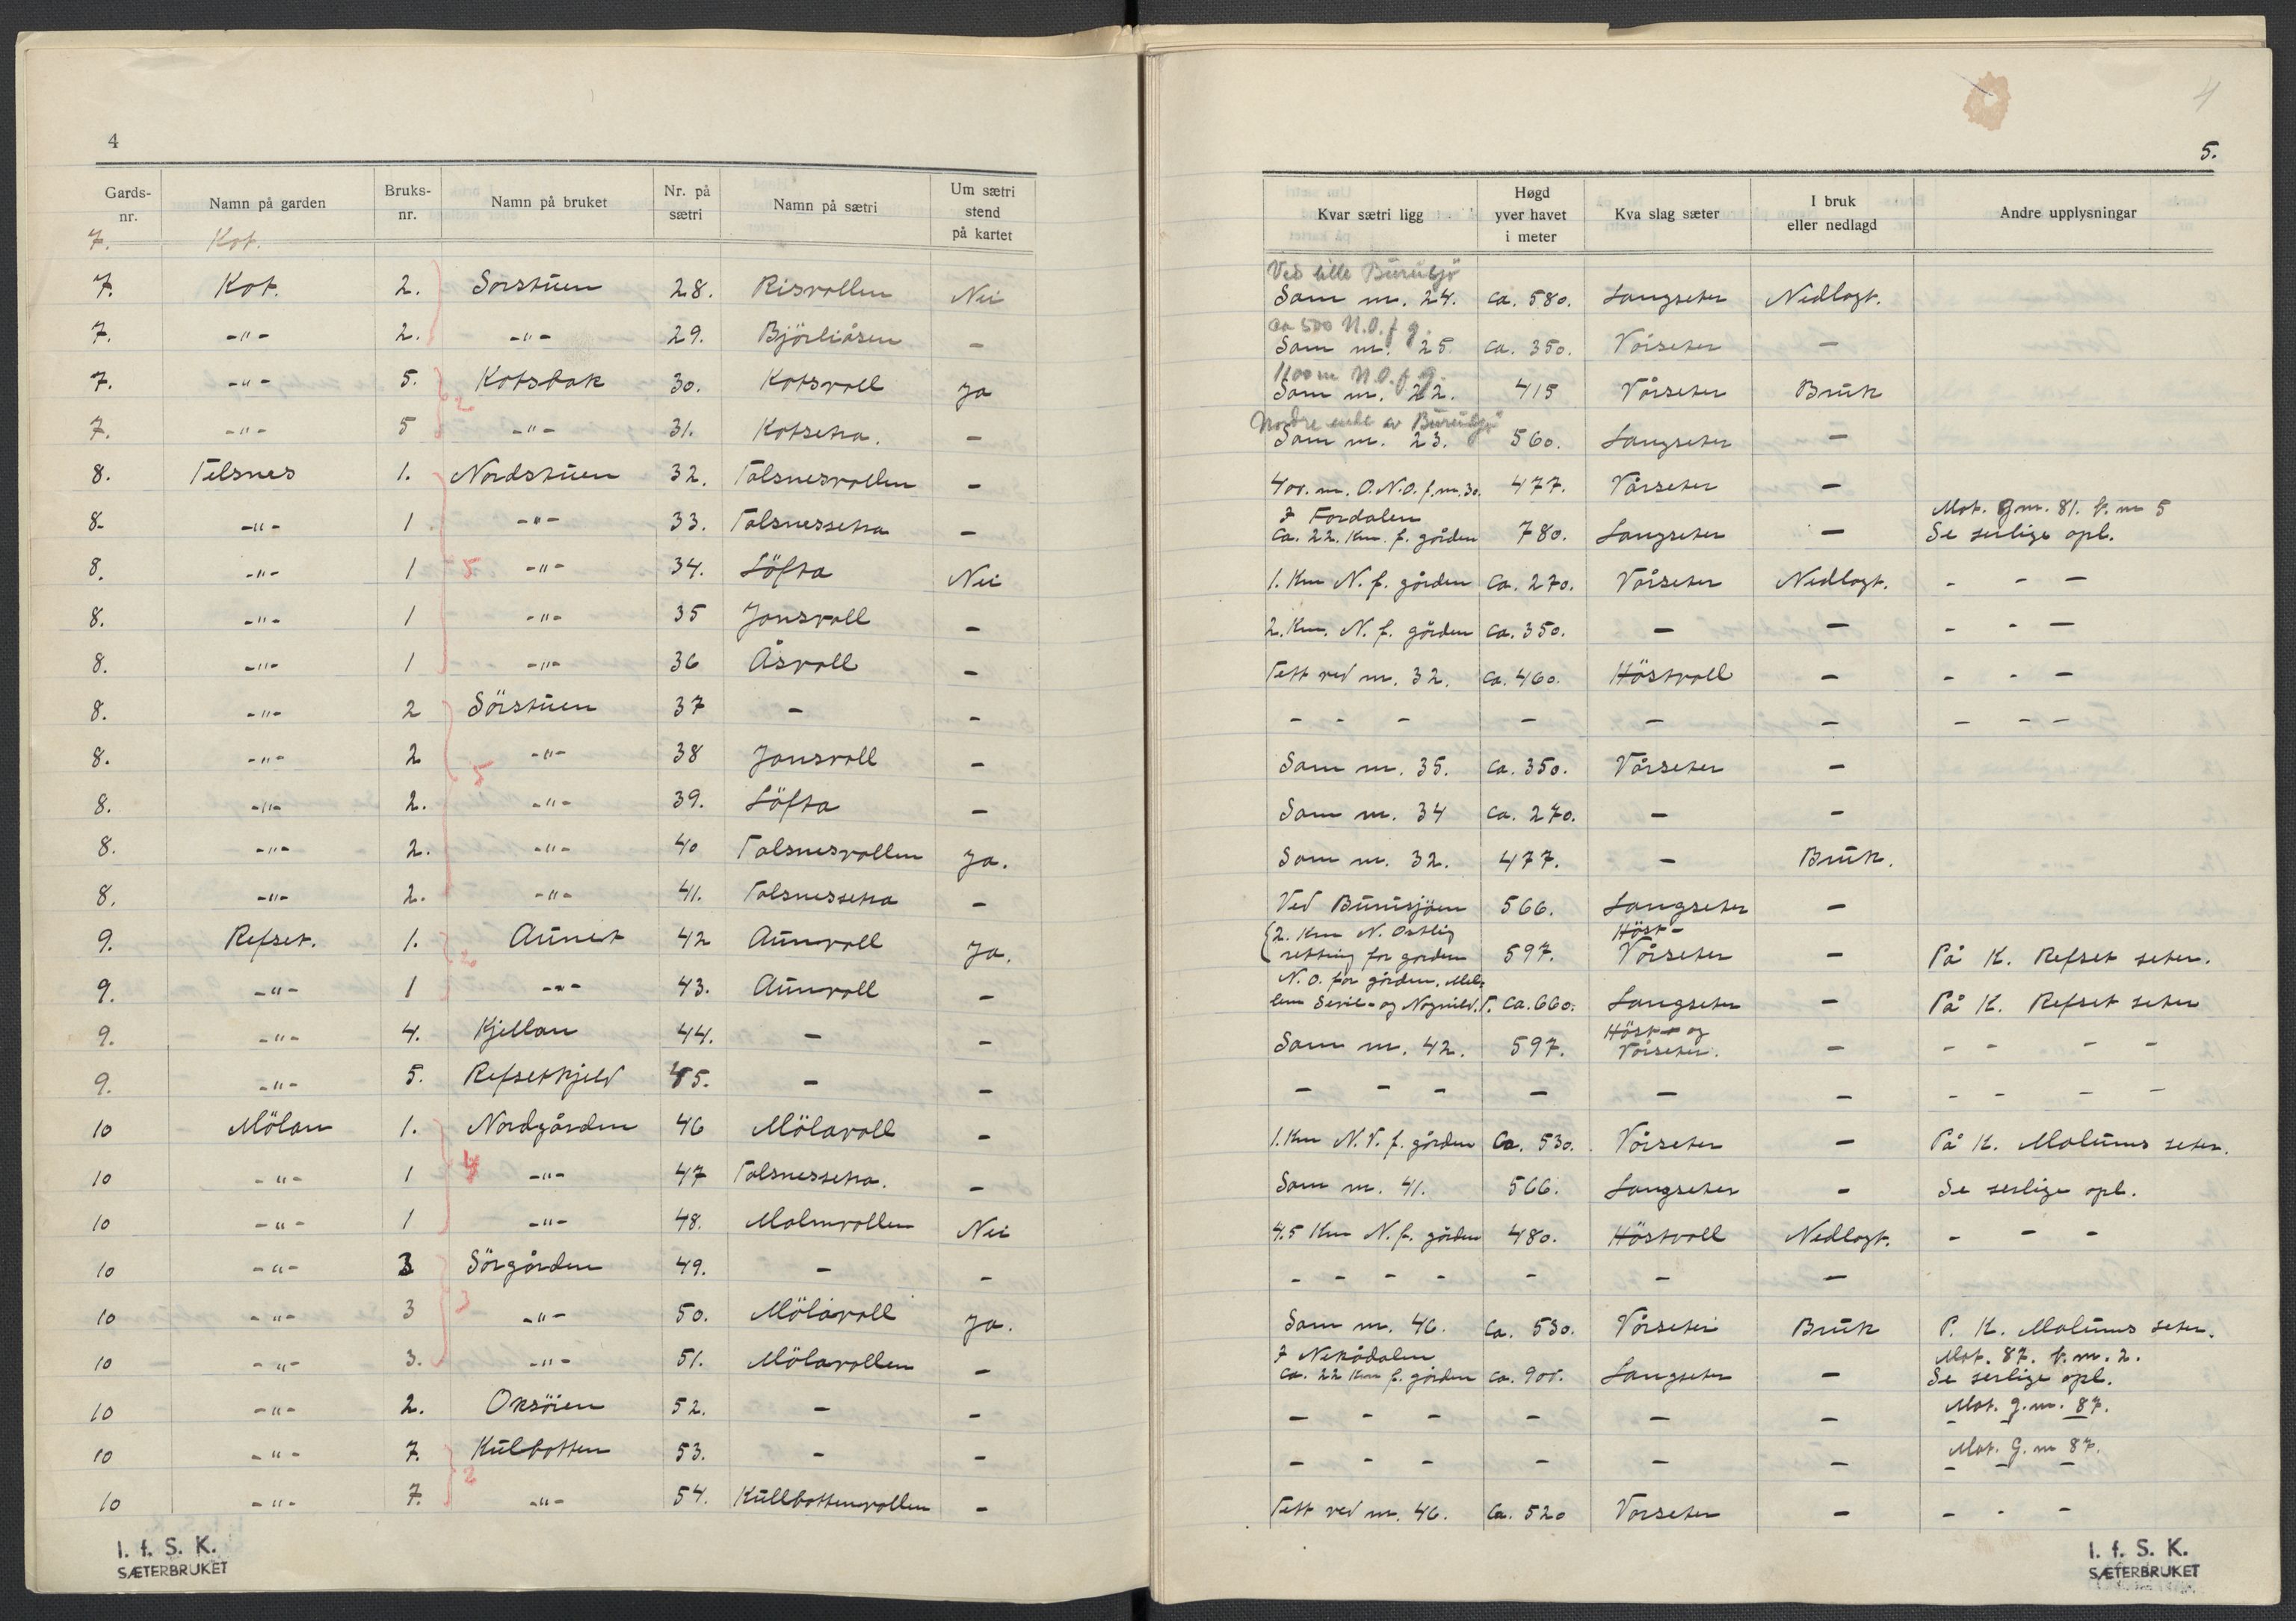 4
Gards-nr. | Namn på garden | Bruks-nr. | Namn på bruket | Nr. på sætri | Namn på sætri | Um sætri stend på kartet
7. Kot.
7. Kot. 2. Sörstuen 28. Risvollen Nei
7. -"- 2. -"- 29. Björliåsen -
7. -"- 5. Kotsbak 30. Kotsvoll Ja
2
7. -"- 5 -"- 31. Kotsetra. -
8. Telsnes 1. Nordstuen 32. Talsnesvollen -
8. -"- 1. -"- 33. Talsnessetra -
8. -"- 1 5 -"- 34. Löfta Nei
8. -"- 1 -"- 35 Jonsvoll -
8. -"- 1 -"- 36 Åsvoll -
8. -"- 2 Sörstuen 37 - -
8. -"- 2 -"- 38 Jonsvoll -
5
8. -"- 2. -"- 39. Löfta -
8. -"- 2. -"- 40 Talsnesvollen Ja.
8. -"- 2. -"- 41. Talsnessetra -
9. Refset. 1. Aunet 42 Aunvoll Ja.
2
9. -"- 1 -"- 43. Aunvoll -
9. -"- 4. Kjellan 44. - -
9. -"- 5. Refsetkjeld 45. - -
10 Mölan 1. Nordgården 46 Mölavoll -
10 -"- 1 4 -"- 47 Talsnessetra. -
10 -"- 1 -"- 48. Malmvollen Nei
10 -"- 3 Sörgården 49. - -
10 -"- 3 3 -"- 50. Mölavoll Ja.
10 -"- 3. -"- 51. Mölavollen -
10 -"- 2. Oksöien 52. - -
10 -"- 7. Kulbotten 53. - -
2
10 -"- 7. -"- 54. Kullbottenvollen -
I. f. S. K.
SÆTERBRUKET
4
5.
Kvar sætri ligg | Høgd yver havet i meter | Kva slag sæter | I bruk eller nedlagd | Andre upplysningar
Ved lille Burusjö
Som nr. 24. ca. 580. Langseter Nedlagt.
ca 500 N.O. f g.
Som nr. 25 ca. 350. Vårseter -
1100 m N.O. f. g.
Som nr. 22. 415 Vårseter Bruk
Nordre ende av Burusjö
Som nr. 23. 560. Langseter -
400. m. O.N.O. f. nr. 30. 477. Vårseter -
I Fordalen Mat. g.nr. 81. b. nr 5
Ca. 22. Km. f. gården 780. Langseter - Se serlige opl.
1. Km N. f. gården Ca. 270. Vårseter Nedlagt. - - -
2. Km. N. f. gården Ca. 350. - - - - -
Tett ved nr. 32. Ca. 460. Höstvoll - - - -
- - - - - - - - -
Som nr. 35. Ca. 350. Vårseter -
Som nr. 34 Ca. 270. - -
Som nr. 32. 477. - Bruk.
Ved Burusjöen 566. Langseter -
2. Km N. Östlig Höst-
retning for gården 597. Vårseter - På K. Refset seter.
N.O. for gården. Mel-
lem Sevil- og Nogvild. T. Ca. 660. Langseter - På K. Refset seter
Höst- og
Som nr. 42. 597. Vårseter. - - - - -
- - - - - - - - - -
1. Km N.V. f. gården Ca. 530. Vårseter - På K. Molums seter.
Som nr. 41. 566. Langseter - Se serlige opl.
4.5 Km N. f. gården 480. Höstvoll Nedlagt. - - -
- - - - - - -
Som nr. 46. Ca. 530. Vårseter Bruk P. K. Molums seter.
I Nekådalen Mat. 87. b. nr. 2.
Ca. 22 Km f. gården Ca. 900. Langseter - Se serlige opl.
- - - - - - - Mat. g. nr. 87.
- - - - - - - Mat. G. nr 87.
Tett ved nr. 46. Ca. 520 Vårseter - - - -
I. f. S. K.
SÆTERBRUKET